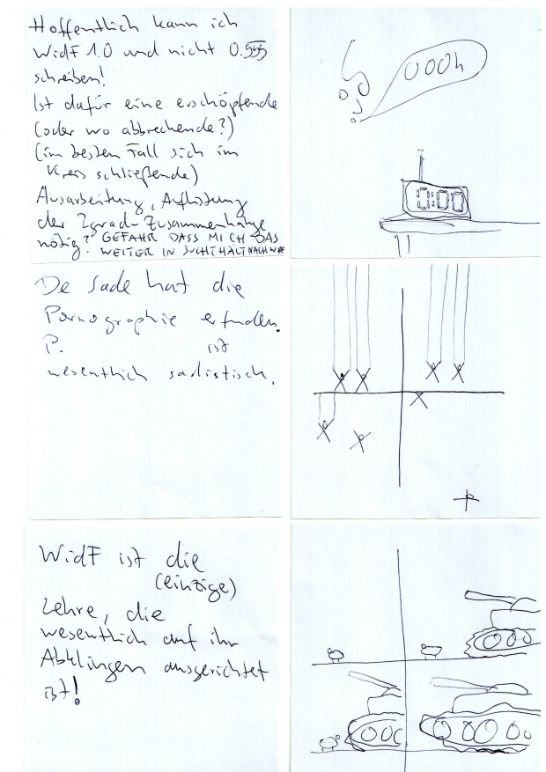 Hoffentlich kann ich
WidF 1.0 und nicht 0.555
schreiben!
Ist dafür eine erschöpfende
(oder wo abbrechende?)
(im besten Fall sich im
Kreis schließende)
Ausarbeitung, Auflistung
der 2grad-Zusammenhänge
nötig? GEFAHR DASS MICH DAS
WEITER IN SUCHT HÄLT NACH WIDF
000h
0:00
De Sade hat die
Pornographie erfunden.
P. ist
wesentlich sadistisch.
WidF ist die
(einzige)
Lehre, die
wesentlich auf ihr
Abklingen ausgerichtet
ist!